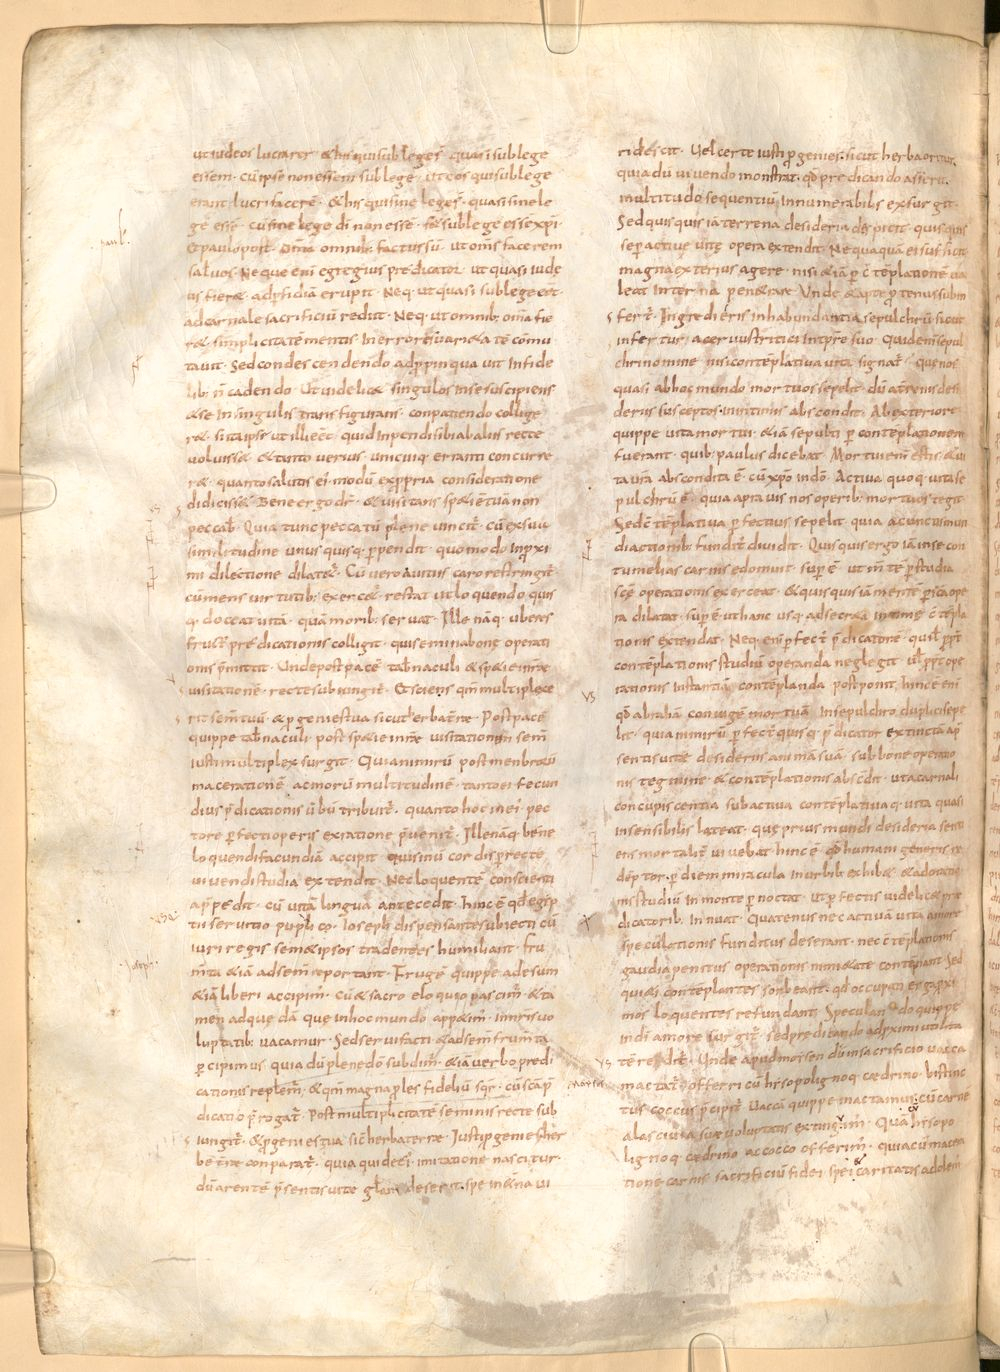 ut iudeos lucrarer & his qui sub lege s̄ quasi sub lege
essem. cū ipse non essem sub lege. ut eos qui sub lege
erant lucrifacerē. & his qui sine lege s̄. quasi sine le
ge essē. cū sine lege dī non essē. sub lege essē xp̄i.
& paulo post. om̄ia omnib; factus sū. ut om̄s facerem
saluos. Neque enī egregius predicator ut quasi iudę
us fier&. ad p̱fidiā erupit. Neq; ut quasi sub lege ēēt.
ad carnale sacrificiū rediit. Neq; ut omnib; om̄ia fie
r&. simplicitatē mentis in errorē uari&atē comu
tauit. Sed condescendendo adp̱pinquauit infide
lib; n̄ cadendo. Ut uidelic& singulos in se suscipiens
& se in singulis transfigurans. conpatiendo collige
r&. si ita ipse ut illi eēt. quid inpendi sibi ab aliis recte
voluiss&. & tanto verius unicuiq; erranti concurre
r&. quanto salutis ei modū ex p̱pria consideratione
didiciss&. Bene ergo dr̄. & uisitans spēē tuā non
peccab̄. Quia tunc peccatū plene uincit. cū ex sui
similitudine unus quisq; p̱pendit. quomodo in p̱xi
mi dilectione dilat&ur. Cū vero a uitiis caro restringit̄.
cū mens uirtutib; exerc&ur. restat ut loquendo quis
q; doceat uitā. quā morib; seruat. Ille nāq; uberes
fructus predicationis colligit. qui semina bonę operati
onis p̄mittit. Unde post pacē tabnaculi & spēei n̄rae
uisitationē. recte subiungit̄. & scies qm̄ multiplex e
rit semē tuū. & p̱genies tua sicut herba t̄rae. Post pacē
quippe tab̄naculi. post spēei n̄rae uisitationem semē
iusti multiplex surgit. Quia nimirū post membrorū
macerationē ac morū multitudinē. tanto ei fecun
dius p̄dicationis u̅bū tribuit̄. quanto hoc in ei pec
tore p̱fecti operis exratione p̄uenit̄. Ille nāq; bene
loquendi facundiā accipit. qui sinū cordis p̱ recte
uiuendi studia extendit. Nec loquentē conscienti
a p̄pedit. cū uitā linguā antecedit. hinc ē qđ egip̄
tii seruitio puplico. Ioseph dispensante subiecti cū
iuri regis semet ipsos tradentes humiliant. fru
m̄ta &iā ad sem̄ reportant. Frugē quippe ad esum
&iā liberi accipim̄. cū & sacro eloquio pascim̄. & ta
men ad quędā quę in hoc mundo app&im̄. in n̄ris uo
luptatib; uacamur. Sed serui facti & ad sem̄ frum̄ta
p̱cipimus. quia dū plene dō subdim̄. &iā verbo predi
cationis replem̄. & qm̄ magna p̱les fideliū seqr̄. cū scā p̄
dicatio p̱rogat̄. Post multiplicitatē seminis recte sub
iungit̄. & p̱genies tua sic herba terrae. Iusti p̱genies her
bę t̄rae conparat̄. quia qui de ei imitatione nascitur.
dū arentē p̄sentis uitę gl̄am deserit. spe in &na ui
ridescit. Uel certe iusti p̱genies. sicut herba oritur.
quia dū uiuendo monstrat. qđ predicando asserit.
multitudo sequentiū innumerabilis exsurgit.
Sed quisquis iā terrena desideria despicit. quisquis
se p̱ activę uitę opera extendit. Nequaquā ei sufficit
magna exterius agere. nisi &iā p̱ c̄tēplationē ua
leat interna pen&rare. Unde & apte p̱tenus subin
fert̄. Ingredieris in habundantia sepulchrū. sicut
infertur aceruus tritici in tp̄re suo. Quid enī sepul
chri nomine. nisi contēplativa uita signat̄. que nos
quasi ab hoc mundo mortuos sepelit. dū a t̄renis desi
deriis susceptos. in intimis abscondit. Ab exteriore
quippe uita mortui. &iā sepulti p̱ contēplationem
fuerant. quib; paulus dicebat. Mortui eni estis. & ui
ta ūra abscondita ē. cū xp̄o in dō. Activa quoq; uita se
pulchrū ē. quia a prauis nos operib; mortuos tegit.
Sed c̄tēplativa p̱fectius sepelit. quia a cunctis mun
di actionib; funditus dividit. Quisquis ergo iā in se con
tumelias carnis edomuit. sup̱ē. ut m̄tē p̱ studia
scę̄ operationis exerceat. & quisquis iā mentē p̱ scā ope
ra dilatat. sup̱ē ut hanc usq; ad secr&a intimę c̄tēpla
tionis extendat. Neq; eni p̱fect̄ p̄dicator ē. qui ul̄ p̱p̄t
contēplationis studiū operanda neglegit. ul̄ p̱p̄t ope
rationis instantiā contēplanda postponit. hinc ē eni
qđ abrahā coniugē mortuā in sepulchro duplici sepe
lit. quia nimirū p̱fect̄ quisq; p̱dicator extinctā a p̄
sentis uitę desideriis animā suā. sub bonę operatio
nis tegmine. & contēplationis abscdit. ut a carnali
concupiscentia sub activa contēplativaq; vita quasi
insensibilis lateat. quę prius mundi desideria senti
ens mortalit̄ uiuebat. hinc ē qđ humani generis re
dēptor. p̱ diem miracula in urbib; exhib&. & ad oratio
nis studiū in monte p̱noctat. ut p̱fectis uidelic& pre
dicatorib; innuat. Quatenus nec activā uitā amore
speculationis funditus deserant. nec c̄tēplationis
gaudia penitus operationis nimi&ate contēpnant. Sed
qui&i contēplantes sorbeant. qđ occupati erga p̱xi
mos loquentes refundant. Speculando quippe
in dī amorē surgit̄. sed predicando ad p̱ximi utilita
tē redit̄. Unde apud moisen dū in sacrificio uacca
mactat̄. offerri cū hisopo lignoq; caedrino. bistinc
tus coccus p̄cipit̄. Uaccā quippe mactamus. cū carnē
a lasciuia suę uoluptatis extinguim̄. Quā cū hisopo
lignoq; caedrino ac cocco offerim̄. quia cū macta
tione carnis sacrificiū fidei spei & caritatis adolem̄
paul̄.
ioseph.
moises